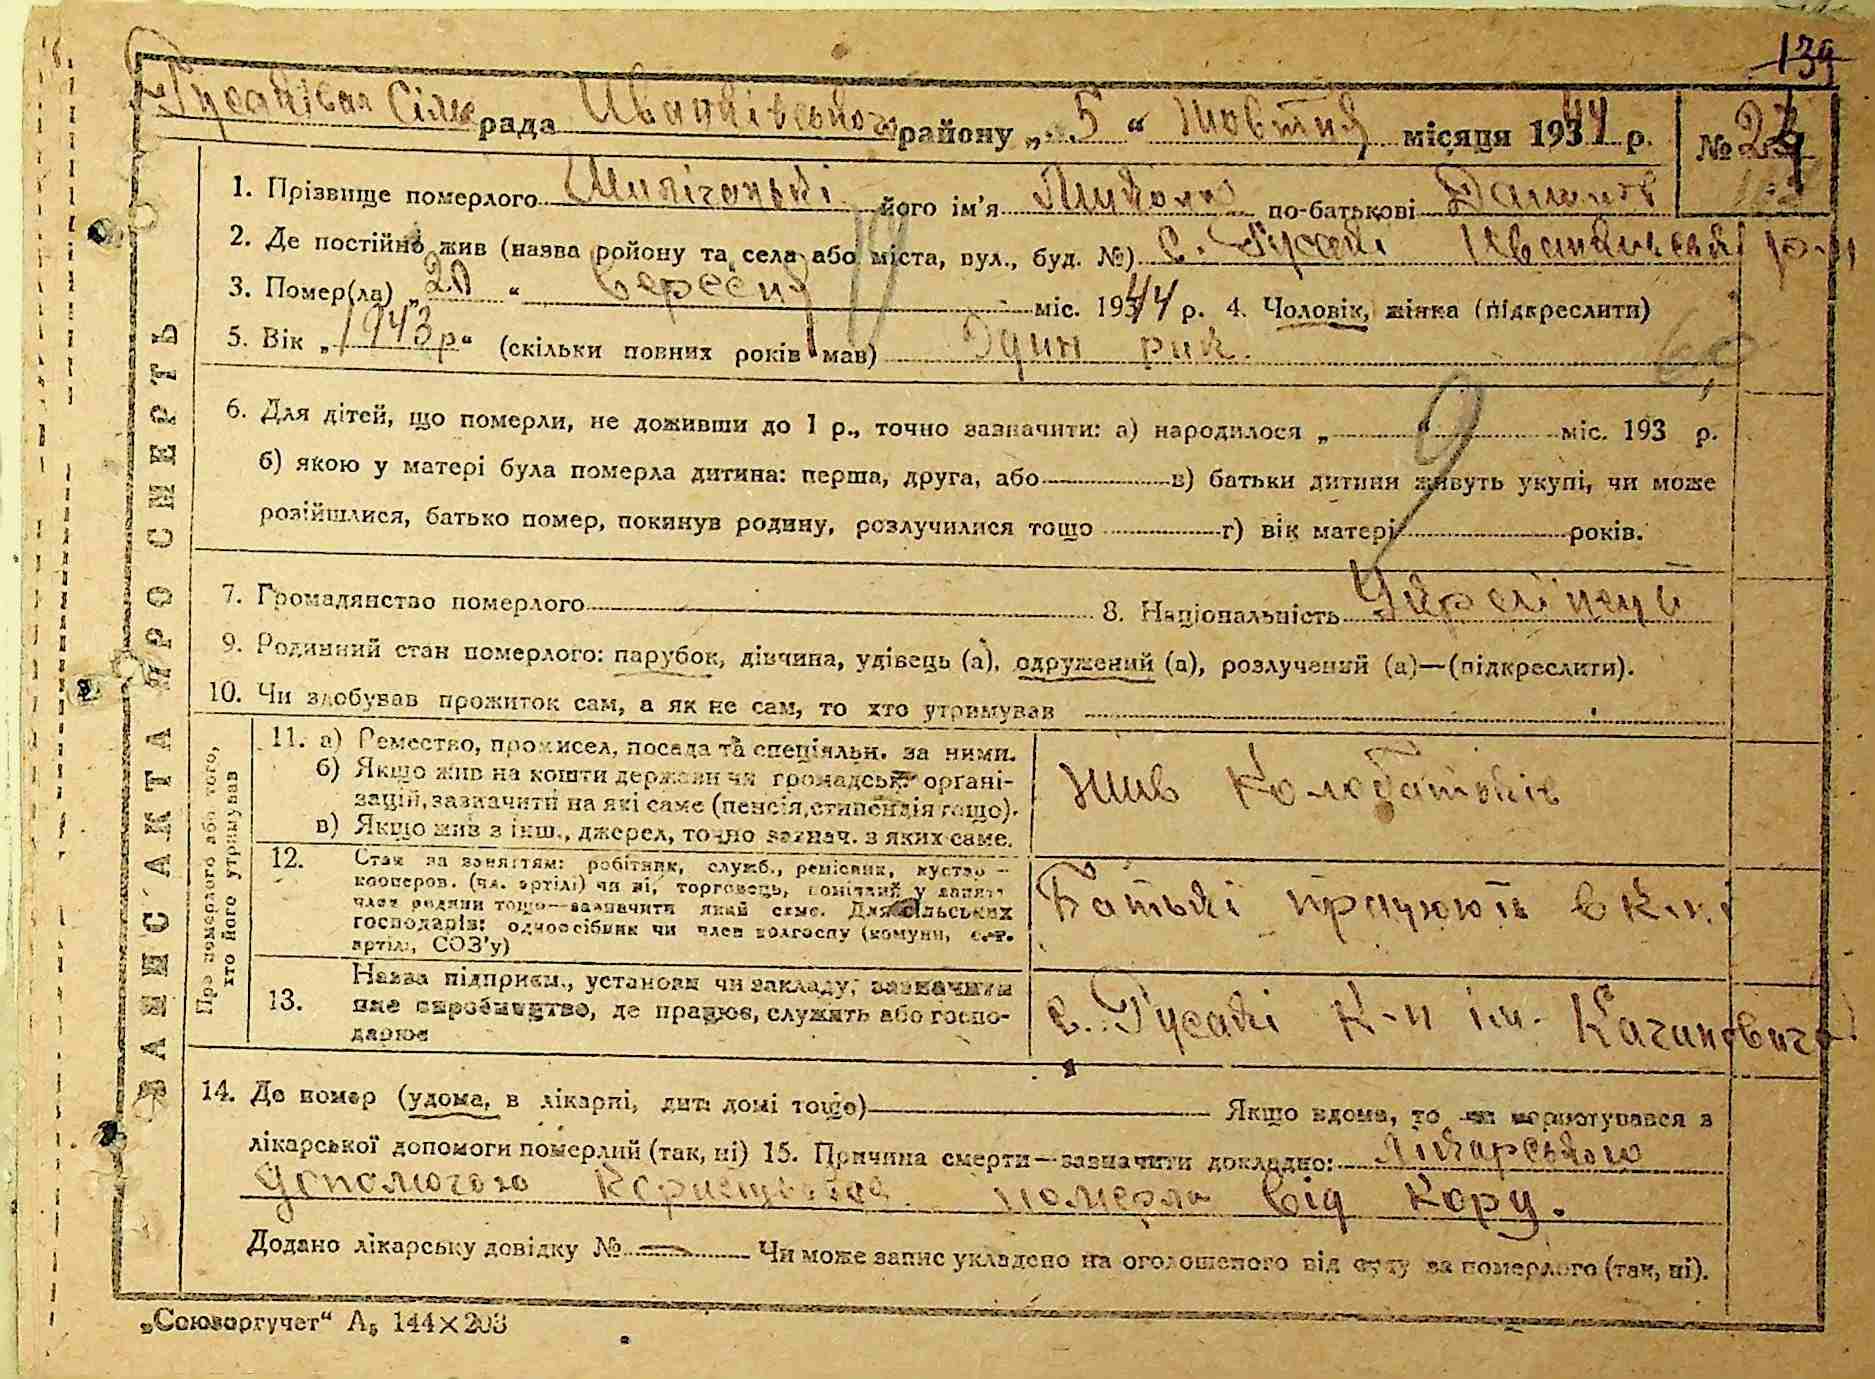 139
Гусаківська Сіль рада Иванківського району „ 5 “ Жовтня місяця 1944 р. № 27
1. Прізвище померлого його ім'я Микола по-батькові
2. Де постійно жив (назва ройону та села або міста, вул., буд. №) с. Гусакі р-н
3. Помер(ла) „ 20 “ Вересня міс. 1944 р. 4. Чоловік, жінка (підкреслити)
5. Вік „ 1943 р “ (скільки повних років мав) Один рик.
6. Для дітей, що померли, не доживши до 1 р., точно зазначити: а) народилося „ “ міс. 193 р.
б) якою у матері була померла дитина: перша, друга, або в) батьки дитини живуть укупі, чи може
розійшлися, батько помер, покинув родину, розлучилися тощо г) вік матері років.
7. Громадянство померлого 8. Національність
9. Родинний стан померлого: парубок, дівчина, удівець (а), одружений (а), розлучений (а)—(підкреслити).
10. Чи здобував прожиток сам, а як не сам, то хто утримував
ЗАПИС АКТА ПРО СМЕРТЬ
Про померлого або того,
хто його утримував
11. а) Ремество, промисел, посада та спеціяльн. за ними.
б) Якщо жив на кошти держави чи громадськ. органі-
зацій, зазначити на які саме (пенсія, стипендія тощо).
в) Якщо жив з інш., джерел, точно зазнач. з яких саме.
жив Колобатьків
12. Стан за заняттям: робітник, служб., ремісник, кустар —
кооперов. (чл. артілі) чи ні, торговець, помічний у занят.
член родини тощо—зазначити який саме. Для сільських
господарів: одноосібник чи член колгоспу (комуни, с.-г.
артілі, СОЗ'у)
Батькі працюють в К-ні
13. Назва підприєм., установи чи закладу, зазначити
яке виробництво, де працює, служить або госпо-
дарює
с. Гусакі К-п ім. Кагановича
14. Де помер (удома, в лікарні, дит. домі тощо) Якщо вдома, то чи користувався з
лікарської допомоги померлий (так, ні) 15. Причина смерти—зазначити докладно: лікарською
допомогою померла від кору.
Додано лікарську довідку № — Чи може запис укладено на оголошеного від суду за померлого (так, ні).
„Союзоргучет“ А₅ 144×203